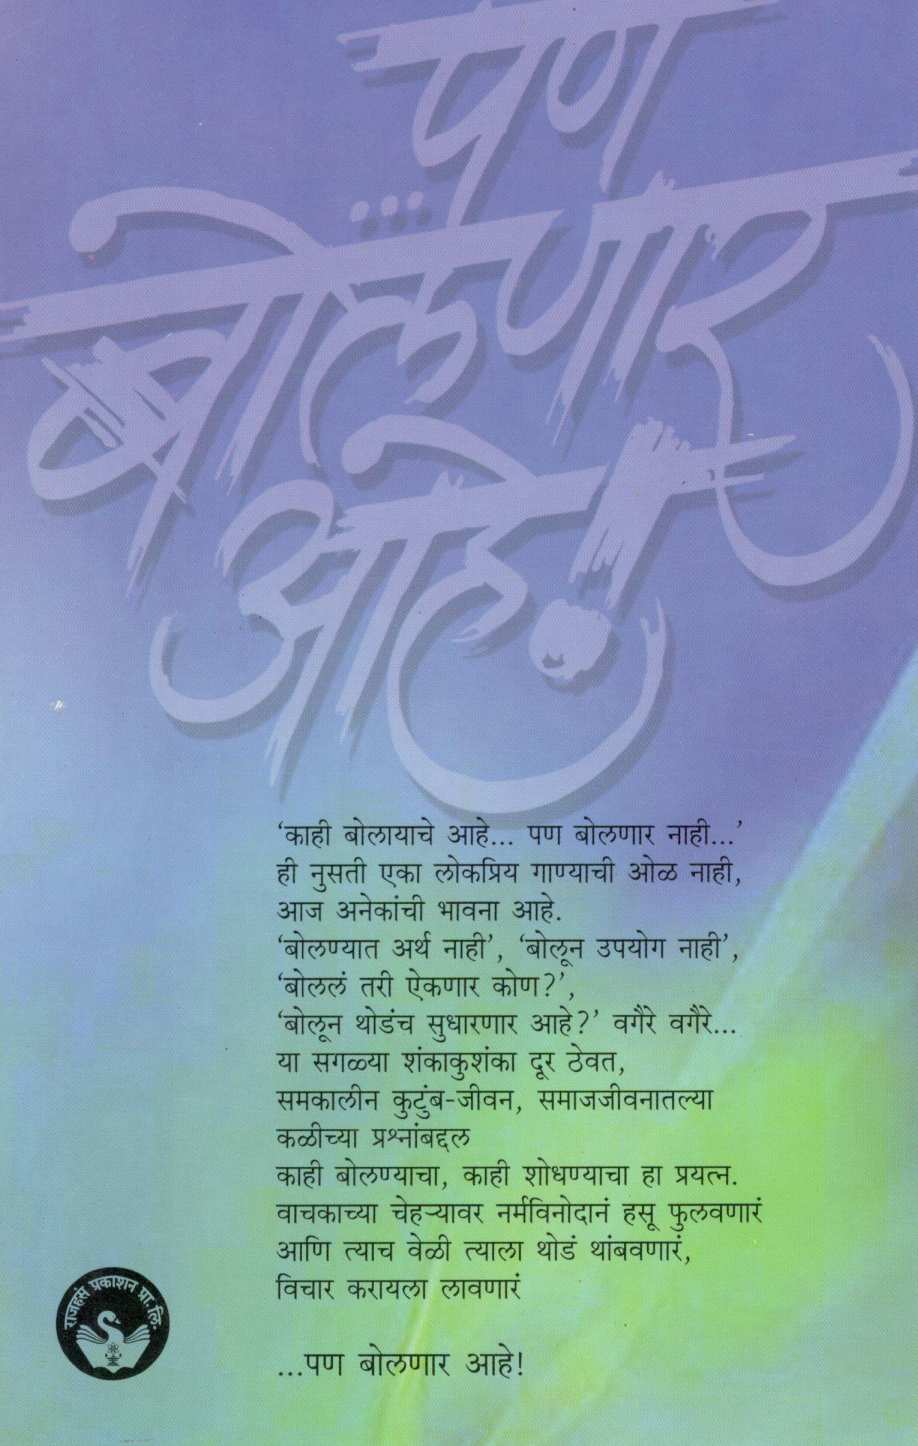 पण
...बोलणार
आहे!
‘काही बोलायाचे आहे... पण बोलणार नाही...’
ही नुसती एका लोकप्रिय गाण्याची ओळ नाही,
आज अनेकांची भावना आहे.
‘बोलण्यात अर्थ नाही’, ‘बोलून उपयोग नाही’,
‘बोललं तरी ऐकणार कोण?’,
‘बोलून थोडंच सुधारणार आहे?’ वगैरे वगैरे...
या सगळ्या शंकाकुशंका दूर ठेवत,
समकालीन कुटुंब-जीवन, समाजजीवनातल्या
कळीच्या प्रश्नांबद्दल
काही बोलण्याचा, काही शोधण्याचा हा प्रयत्न.
वाचकाच्या चेहऱ्यावर नर्मविनोदानं हसू फुलवणारं
आणि त्याच वेळी त्याला थोडं थांबवणारं,
विचार करायला लावणारं
...पण बोलणार आहे!
राजहंस प्रकाशन प्रा. लि.